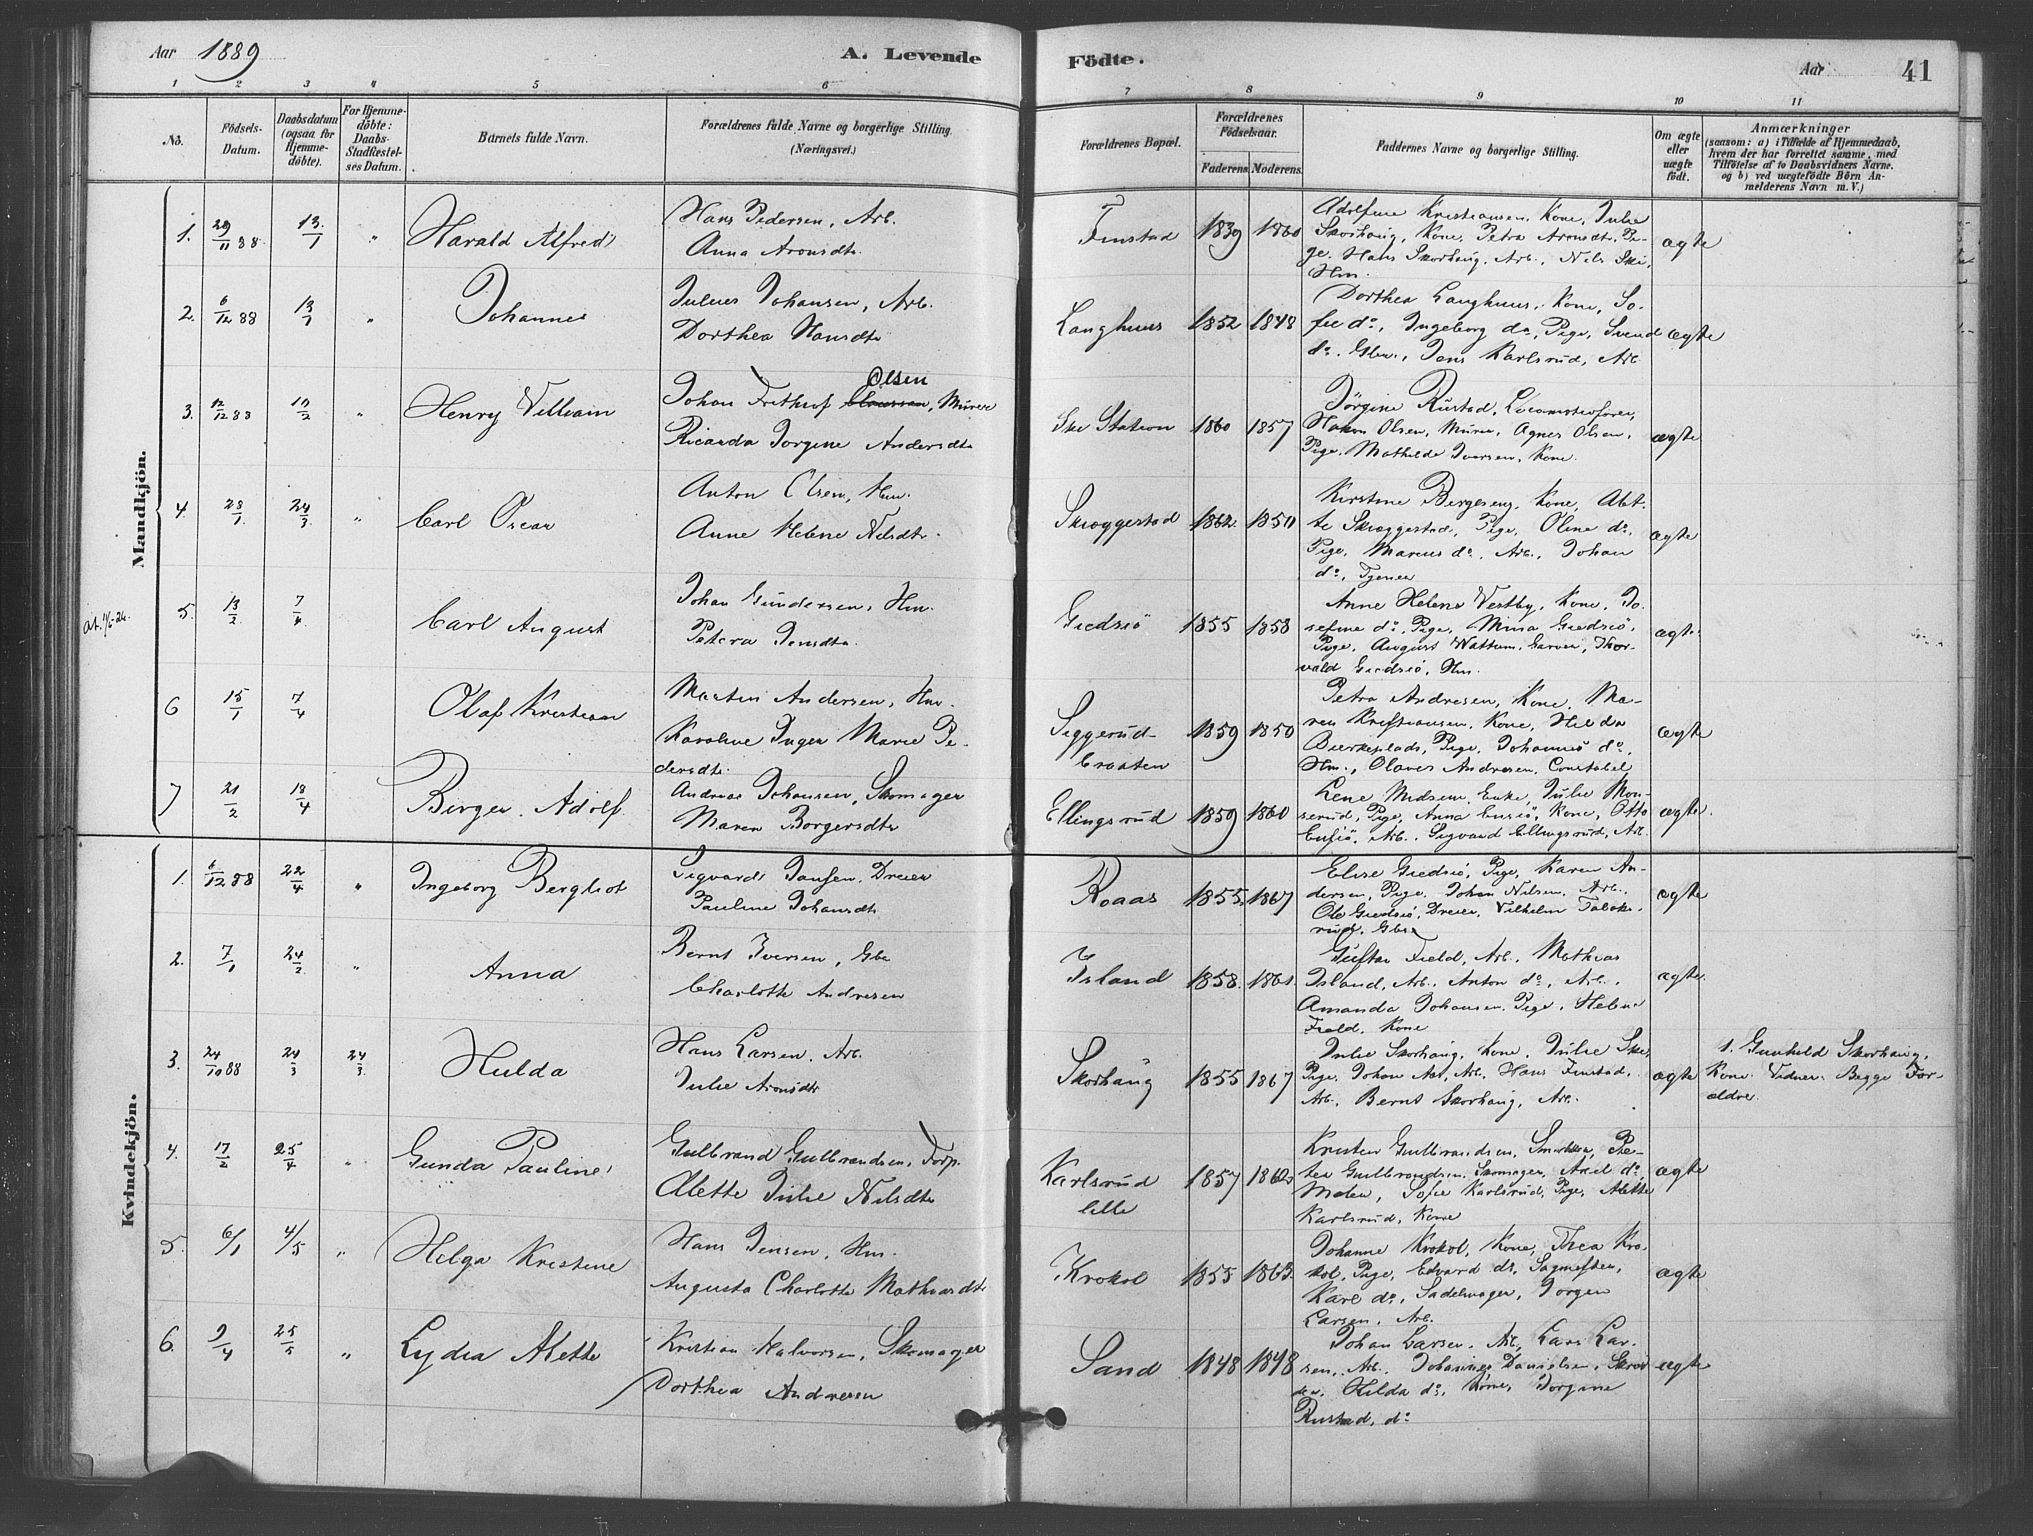 Aar 1889
A. Levende Födte.
Aar
41
1 2 3 4 5 6 7 8 9 10 11
No.
Födsels-Datum.
Daabsdatum (ogsaa for Hjemme-döbte).
For Hjemme-döbte: Daabs-Stadfæstel-ses Datum.
Barnets fulde Navn.
Forældrenes fulde Navne og borgerlige Stilling. (Næringsvei.)
Forældrenes Bopæl.
Forældrenes Födselsaar.
Faderens. Moderens.
Faddernes Navne og borgerlige Stilling.
Om ægte eller uægte födt.
Anmærkninger
(saasom: a) i Tilfælde af Hjemmedaab, hvem der har forrettet samme, med Tilføielse af to Daabsvidners Navne. og b) ved uægtefödte Börn An-melderens Navn m.V.)
Mandkjön.
1. 29/11 88 13/1 " Harald Alfred
Hans Pedersen, Arb.
Anna Aronsdtr.
Finstad 1839 1860
Adolfine Kristiansen, Kone, Julie
Skorhaug, Kone, Petra Aronsdtr, Pi-
ge. Hans Skorhaug, Arb., Nils Ski,
Hm.
ægte
2. 6/12 88 13/1 " Johannes
Julius Johansen, Arb.
Dorthea Hansdtr
Langhuus 1852 1848
Dorthea Langhuus, Kone, So-
fie do, Ingeborg do, Pige, Svend
do. Gbr., Jens Karlsrud, Arb
ægte
3. 12/12 88 17/2 " Henry Villiam
Johan Frithiof Olsen, Murer
Ricarda Jorgine Andersdtr
Ski Station 1860 1857
Jörgine Rustad, Locomotivfører,
Hakon Olsen, Murer, Agnes Olsen,
Pige, Mathilde Iversen, Kone.
ægte
4. 28/1 24/3 " Carl Oscar
Anton Olsen, Hm.
Anne Helene Nilsdtr.
Skroggestad 1862 1850
Kirstine Bergeseng, Kone, Alet-
te Skroggestad, Pige, Oline do,
Pige, Marius do, Arb., Johan
do, Tjener
ægte
at. 11/6-26.
5. 13/2 7/4 Carl August
Johan Gundersen, Hm.
Petera Jensdtr.
Giedsiö 1855 1858
Anne Helene Vestby, Kone, Jo-
sefine do, Pige, Mina Giedsiö,
Pige, August Wattum, Garver, Thor-
vald Giedsiö, Hm.
ægte
6 15/1 7/4 Olaf Kristian
Martin Andersen, Hm.
Karoline Inger Marie Pe-
dersdtr.
Siggerud-
braaten 1859 1850
Petra Andresen, Kone, Ma-
ren Kristiansen, Kone, Hilda
Bierkeplads, Pige, Johannes do,
Hm., Olaves Andresen, Constabel
ægte
7 21/2 18/4 Birger Adolf
Andreas Johansen, Skomager
Maren Borgersdtr
Ellingsrud 1859 1860
Lene Nielsen, Enke, Julie Mon-
serud, Pige, Anna Ensiö, Kone, Otto
Ensiö, Arb. Sigvard Ellingsrud, Arb
ægte.
Kvindekjön.
1. 6/12 88 22/4 " Ingeborg Bergliot
Sigvard Jansen, Dreier
Pauline Johansdtr
Roaas 1855 1867
Elise Giedsiö, Pige, Karen An-
dersen, Pige, Johan Nilsen, Arb.
Ole Giedsiö, Dreier, Vilhelm Taloks-
rud, Gbr
ægte
2. 7/1 24/2 " Anna
Bernt Iversen, Gbr
Charlotte Andresen
Island 1858. 1861
Gustav Field, Arb. Mathias
Island, Arb. Anton do, Arb.,
Amanda Johansen, Pige, Helene
Field, Kone
ægte.
3. 24/10 88 24/3 24/3 Hulda
Hans Larsen. Arb.
Julie Aronsdtr
Skorhaug 1855 1867
Julie Skorhaug, Kone, Julie Ski,
Pige, Johan Aas, Arb, Hans Finstad,
Arb. Bernt Skorhaug, Arb.
ægte
1. Gunhild Skorhaug,
Kone. Vidner: Begge For-
ældre.
4. 17/2 25/4 " Gunda Pauline
Gulbrand Gulbrandsen, Forp.
Alette Julie Nilsdtr
Karlsrud
lille 1857 1862
Kristen Gulbrandsen, Snekker, Pe-
ter Gulbrandsen, Skomager, Axel do,
Maler, Sofie Karlsrud, Pige, Alette
Karlsrud, Kone
ægte
5. 6/1 4/5 " Helga Kristine
Hans Jensen, Hm.
Augusta Charlotte Mathiasdtr
Krokol 1855 1863
Johanne Krokol, Kone, Thea Kro-
kol, Pige, Edvard do, Sagmester,
Karl do, Sadelmager, Jorgen
Larsen, Arb.
ægte
6. 9/4 25/5 " Lydia Alette
Kristian Halvorsen, Skomager
Dorthea Andresen
Sand 1848 1848
Johan Larsen. Arb, Lars Lar-
sen, Arb. Johannes Danielsen, Skræd-
der, Hilda do, Kone, Jorgine
Rustad, do
ægte